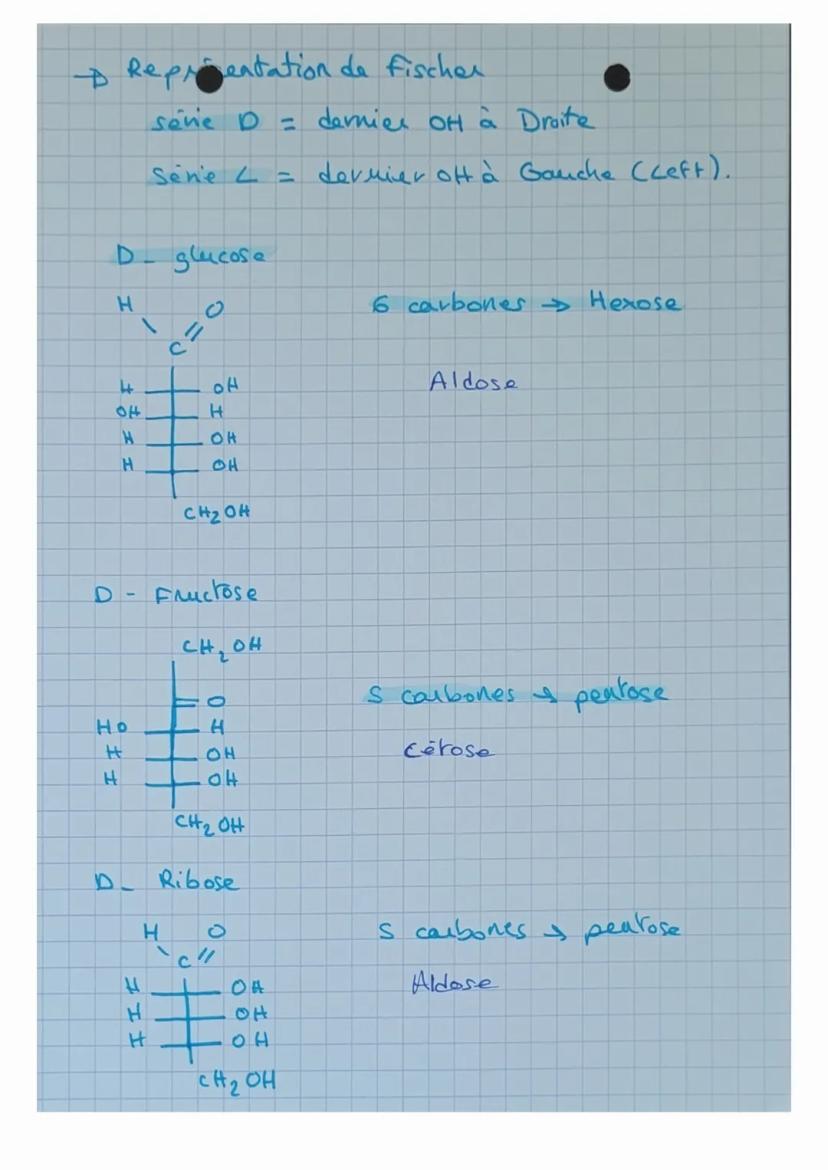 → Représentation de Fischer
série D = dernier OH à Droite
Série L = dernier OH à Gauche (Left).
D - glucose
H O 6 carbones → Hexose
C
H OH Aldose
OH H
H OH
H OH
CH2OH
D - Fructose
CH2OH
O 5 carbones → pentose
HO H
H OH Cétose
H OH
CH2OH
D - Ribose
H O 5 carbones → pentose
C
H OH Aldose
H OH
H OH
CH2OH